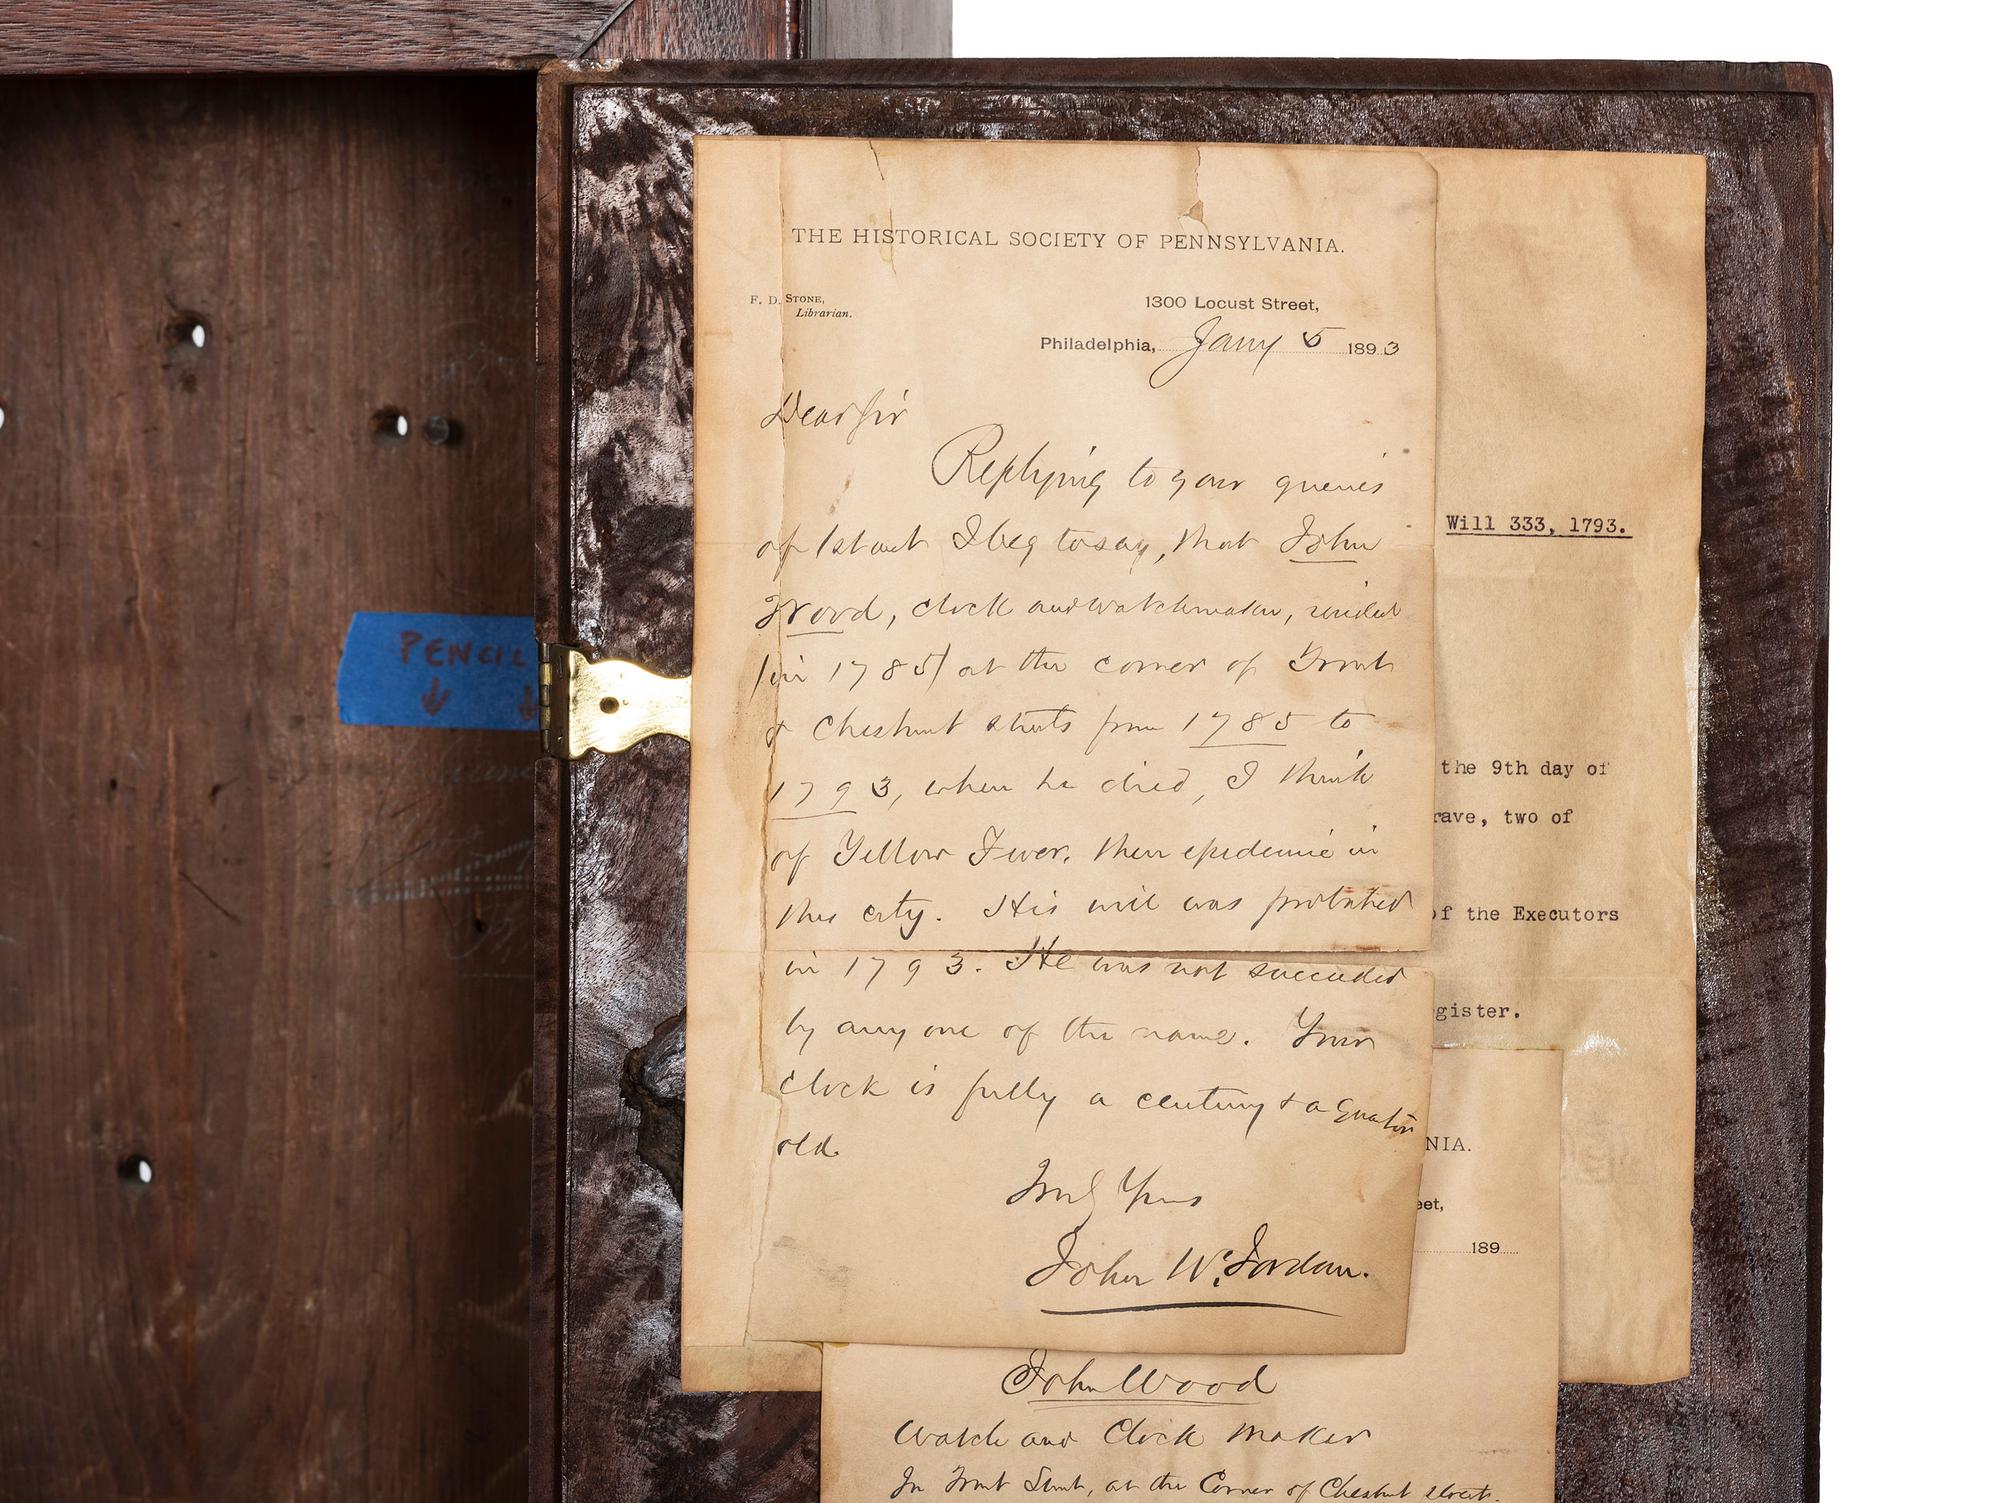 THE HISTORICAL SOCIETY OF PENNSYLVANIA.
F. D. STONE,
Librarian.
1300 Locust Street,
Philadelphia, Jany 5 1893
Dear Sir
Replying to your queries
of 1st inst I beg to say, that John
Wood, clock and watchmaker, resided
(in 1785) at the corner of Front
& Chestnut streets from 1785 to
1793, when he died, I think
of Yellow Fever, then epidemic in
this city. His will was probated
in 1793. He was not succeeded
by any one of the name. Your
clock is fully a century & a quarter
old.
Truly Yours
John W. Jordan.
Will 333, 1793.
the 9th day of
rave, two of
of the Executors
gister.
NIA.
eet,
189
John Wood
Watch and Clock Maker
In Front Street, at the Corner of Chestnut streets.
PENCIL